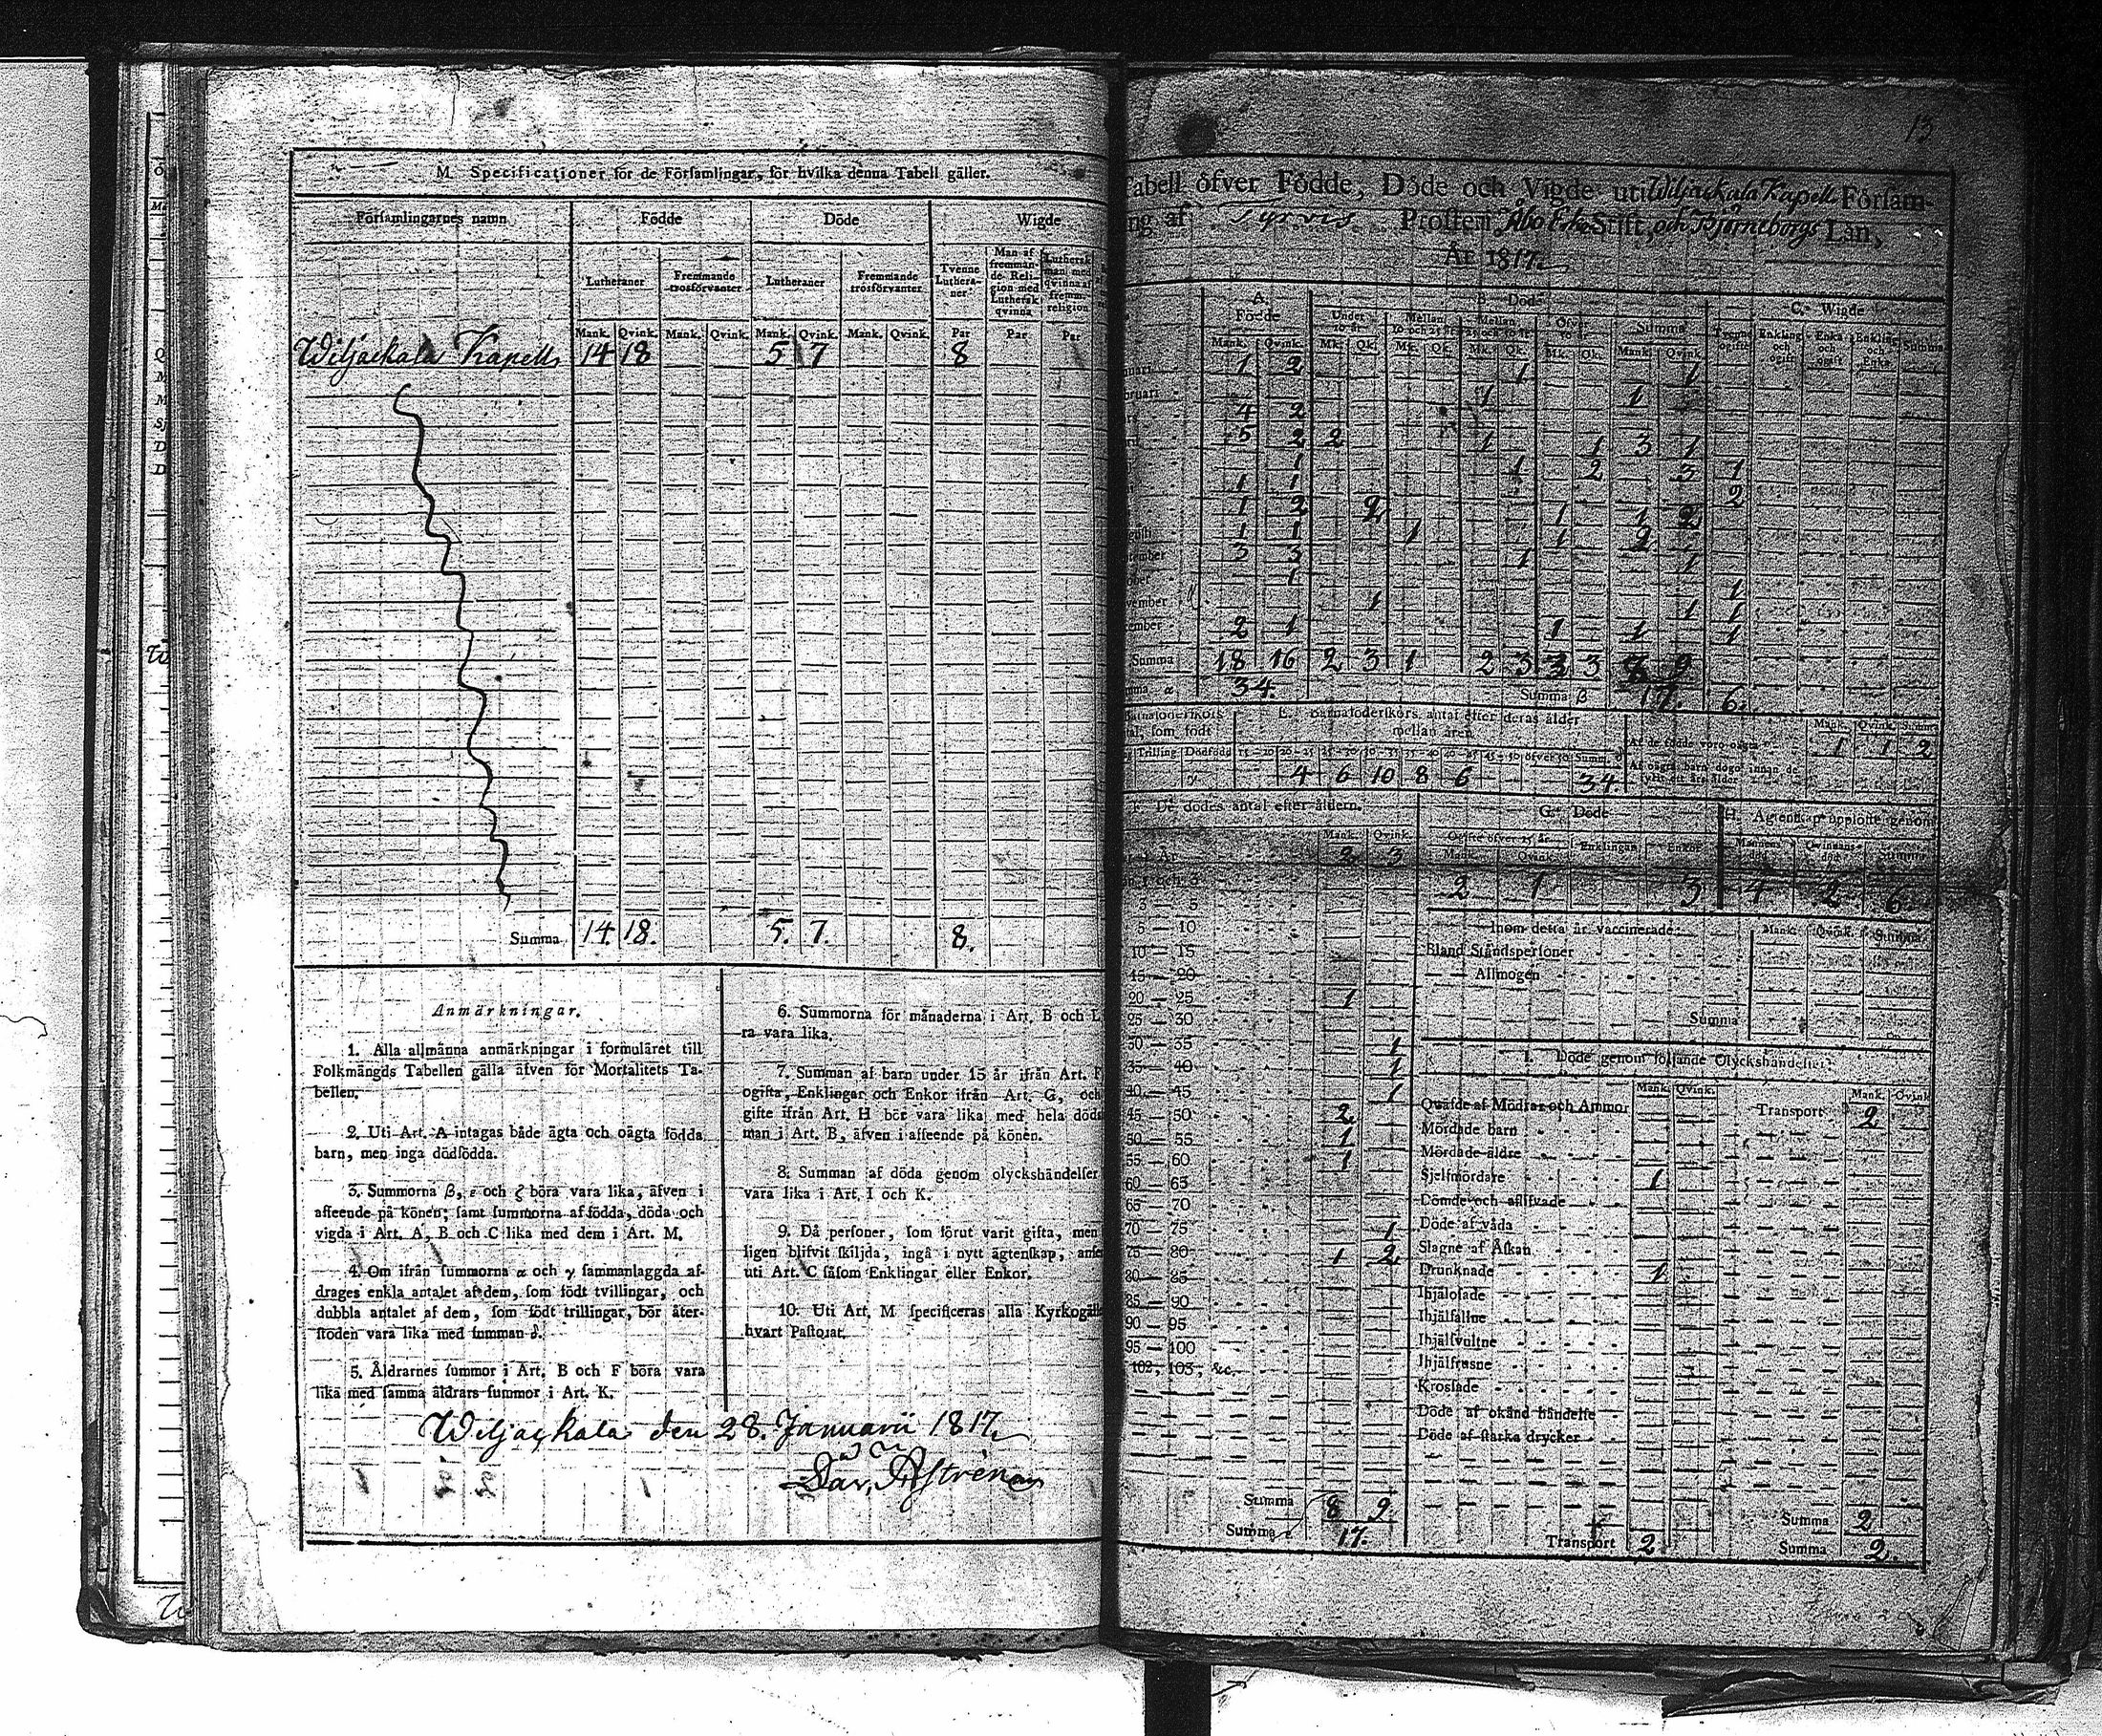 M. Specificationer för de Församlingar, för hvilka denna Tabell gäller.
Församlingarnes namn Födde Döde Wigde
Lutheraner Fremmande trosförvanter Lutheraner Fremmande trosförvanter Tvenne Lutheraner Man af fremmande Religion med Luthersk qvinna Luthersk man med qvinna af fremm. religion
Mank. Qvink. Mank. Qvink. Mank. Qvink. Mank. Qvink. Par Par Par
Wiljackala Kapells 14 18 5 7 8
Summa 14. 18. 5. 7. 8.
Anmärkningar.
1. Alla allmänna anmärkningar i formuläret till
Folkmängds Tabellen gälla äfven för Mortalitets Ta-
bellen.
2. Uti Art. A intagas både ägta och oägta födda
barn, men inga dödfödda.
3. Summorna β, ε och ζ böra vara lika, äfven i
afseende på könen; samt summorna af födda, döda och
vigda i Art. A, B och C lika med dem i Art. M.
4. Om ifrån summorna α och γ sammanlaggda af-
drages enkla antalet af dem, som födt tvillingar, och
dubbla antalet af dem, som födt trillingar, bör åter-
stoden vara lika med summan δ.
5. Åldrarnes summor i Art. B och F böra vara
lika med samma åldrars summor i Art. K.
6. Summorna för månaderna i Art. B och L
ra vara lika.
7. Summan af barn under 15 år ifrån Art. F
ogifta, Enklingar och Enkor ifrån Art. G, och
gifte ifrån Art. H bör vara lika med hela döds
man i Art. B, äfven i afseende på könen.
8. Summan af döda genom olyckshändelser
vara lika i Art. I och K.
9. Då personer, som förut varit gifta, men
ligen blifvit skiljda, ingå i nytt ägtenskap, anse
uti Art. C såsom Enklingar eller Enkor.
10. Uti Art. M specificeras alla Kyrkogäll
hvart Pastorat.
Wiljackala den 28. Januarii 1817.
Dav. Astrén
13
Tabell öfver Födde, Döde och Vigde uti Wiljackala Kapell Försam-
ng af Tyrvis Prosteri, Åbo Erke Stift, och Björneborgs Län,
År 1817.
A. Födde B. Döde C. Wigde
Under 10 år Mellan 10 och 25 år Mellan 25 och 50 år Öfver 50 Summa Tvenne ogifte Enkling och ogift Enka och ogift Enkling och Enka Summa
Mank. Qvink. Mk. Qk. Mk. Qk. Mk. Qk. Mk. Qk. Mank. Qvink.
nuari 1 2 1 1
bruari 1 1
4 2
5 2 2 1 1 3 1
1 1 2 3 1
1 1 2
1 2 2 1 1 2
gusti 1 1 1 1 2
tember 3 3 1 1
ober 1 1
vember 1 1 1
ember 2 1 1 1 1
Summa 18 16 2 3 1 2 3 3 3 8 9
mma α 34. Summa β 17. 6.
Barnaföderskors tal, som födt E. Barnaföderskors antal efter deras ålder mellan åren Mank. Qvink. Summa
Trilling Dödfödd 15-20 20-25 25-30 30-35 35-40 40-45 45-50 öfver 50 Summ. δ
Af de födde voro oägta 1 1 2
Af oägta barn dogo innan de fyllt ett års ålder
γ 4 6 10 8 6 34.
F. De dödes antal efter åldern. G. Döde H. Ägtenskap upplöste genom
Mank. Qvink. Ogifte öfver 15 år Enklingar Enkor Mannens död Qvinnans död Summa
År 2 3 Mank. Qvink.
2 1 3 4 2 6.
3 — 5
5 — 10 Inom detta år vaccinerade: Mank. Qvink. Summa
10 — 15 Bland Ståndspersoner
15 — 20 — Allmogen
20 — 25 1
25 — 30 Summa
30 — 35 1
35 — 40 1 I. Döde genom följande Olyckshändelser:
40 — 45 1 Mank. Qvink. Mank. Qvink
45 — 50 2 Qväfde af Mödrar och Ammor Transport 2
50 — 55 1 Mördade barn
55 — 60 1 Mördade äldre
60 — 65 Sjelfmördare 1
65 — 70 Dömde och aflifvade
70 — 75 1 Döde af våda
75 — 80 1 2 Slagne af Åskan
80 — 85 Drunknade 1
85 — 90 Ihjälosade
90 — 95 Ihjälfallne
95 — 100 Ihjälsvultne
102, 103, &c. Ihjälfrusne
Krossade
Döde af okänd händelse
Döde af starka drycker
Summa 8 9. Summa 2
Summa 17. Transport 2 Summa 2.